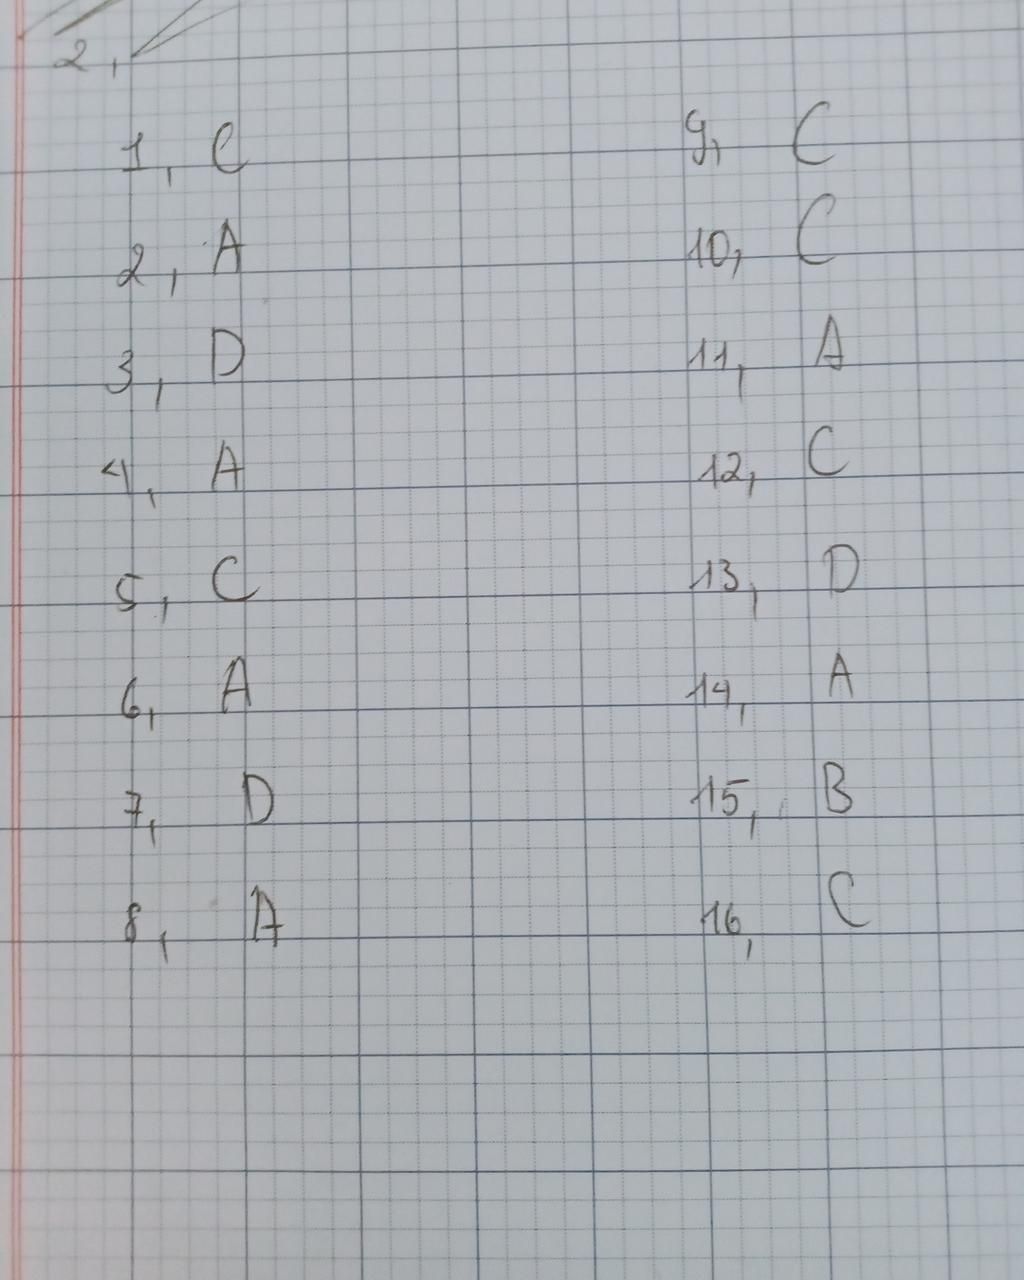 2,
1, C
2, A
3, D
4, A
5, C
6, A
7, D
8, A
9, C
10, C
11, A
12, C
13, D
14, A
15, B
16, C